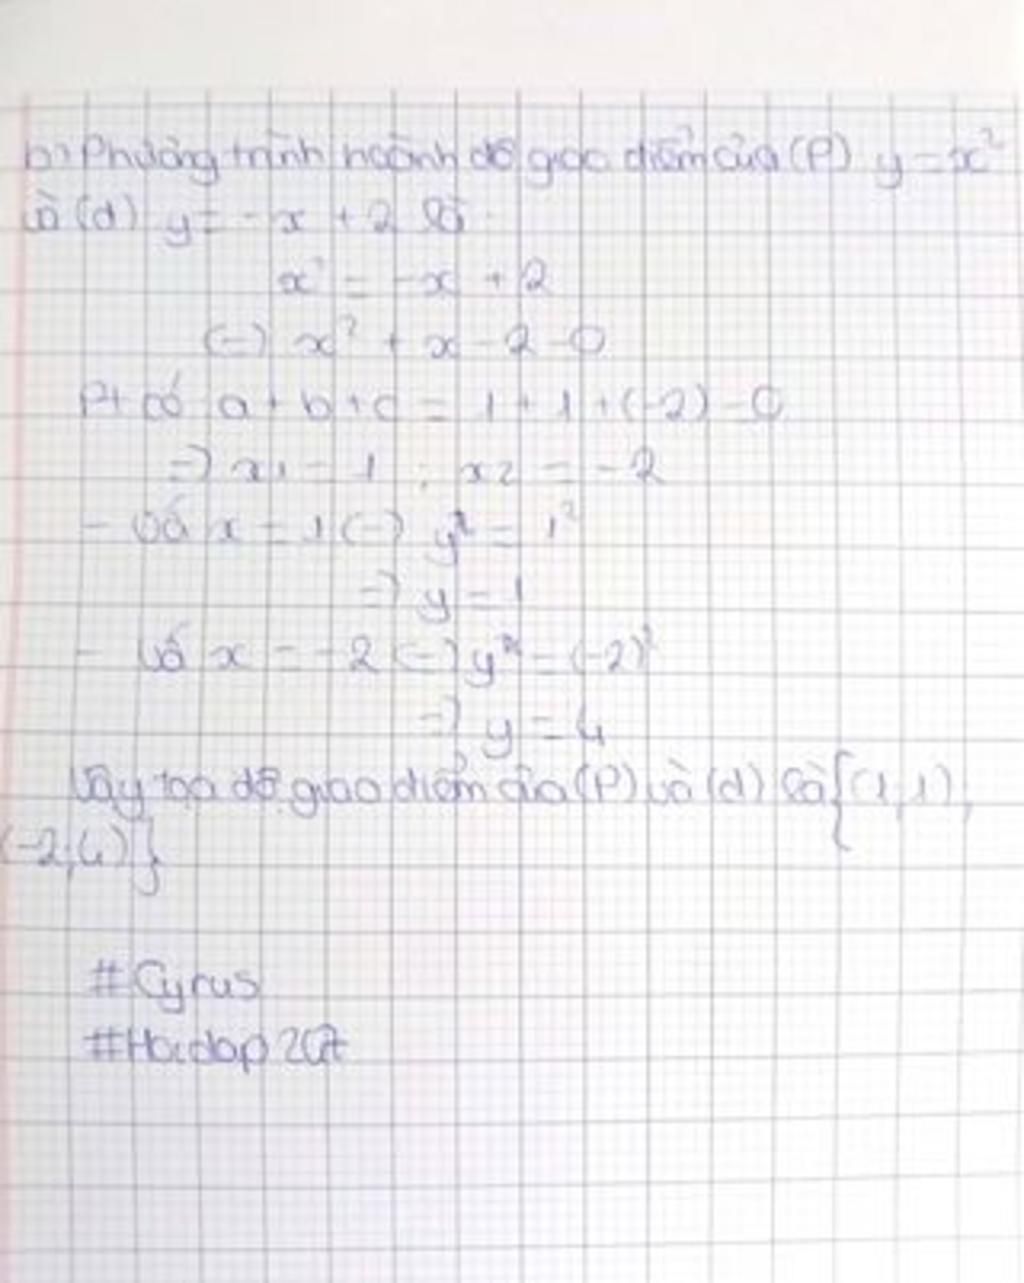 b) Phương trình hoành độ giao điểm của (P) y = x²
và (d) y = -x + 2 là
x² = -x + 2
(=) x² + x - 2 = 0
Pt có a + b + c = 1 + 1 + (-2) = 0
=) x1 = 1 ; x2 = -2
- Với x = 1 (=) y = 1²
=) y = 1
- Với x = -2 (=) y = (-2)²
=) y = 4
Vậy tọa độ giao điểm của (P) và (d) là {(1,1),
(-2;4)}
#Cyrus
#Hoidap247